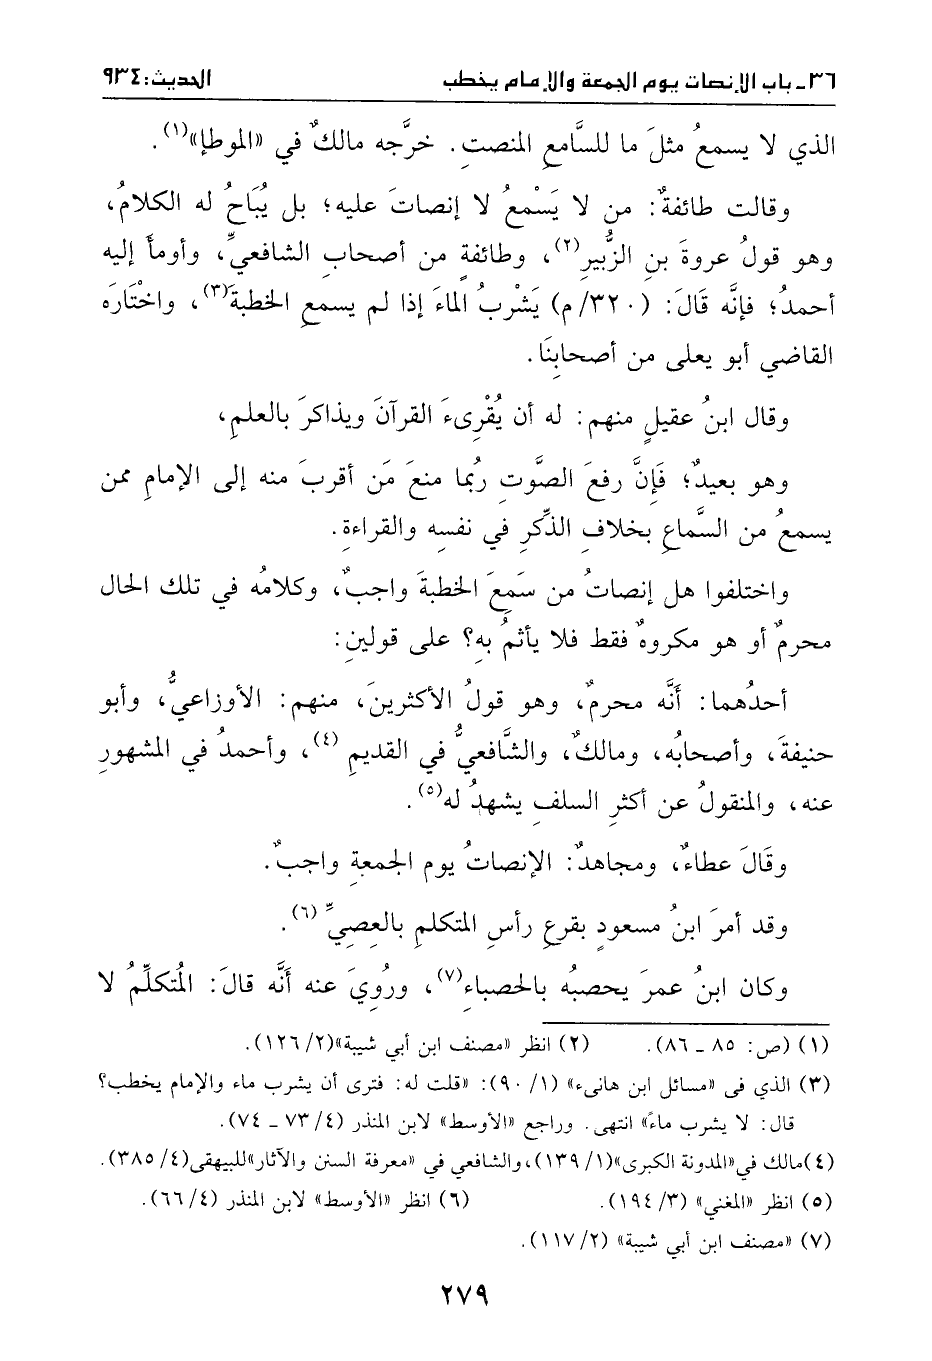 ٣٦ - باب الإنصات يوم الجمعة والإمام يخطب الحديث: ٩٣٤
الذي لا يسمعُ مثلَ ما للسَّامعِ المنصتِ. خرَّجه مالكٌ في «الموطإ»(١).
وقالت طائفةٌ: من لا يَسْمعُ لا إنصاتَ عليه؛ بل يُبَاحُ له الكلامُ،
وهو قولُ عروةَ بنِ الزُّبيرِ(٢)، وطائفةٍ من أصحابِ الشافعيِّ، وأومأَ إليه
أحمدُ؛ فإنَّه قَالَ: (٣٢٠/م) يَشْربُ الماءَ إذا لم يسمعِ الخطبةَ(٣)، واخْتَارَه
القاضي أبو يعلى من أصحابِنَا.
وقال ابنُ عقيلٍ منهم: له أن يُقْرِىءَ القرآنَ ويذاكرَ بالعلمِ،
وهو بعيدٌ؛ فَإِنَّ رفعَ الصَّوتِ ربُما منعَ مَن أقربَ منه إلى الإمامِ ممن
يسمعُ من السَّماعِ بخلافِ الذِّكرِ في نفسِه والقراءةِ.
واختلفوا هل إنصاتُ من سَمِعَ الخطبةَ واجبٌ، وكلامُه في تلك الحال
محرمٌ أو هو مكروهٌ فقط فلا يأثمُ بِه؟ على قولينِ:
أحدُهما: أَنَّه محرمٌ، وهو قولُ الأكثرينَ، منهم: الأوزاعيُّ، وأبو
حنيفةَ، وأصحابُه، ومالكٌ، والشَّافعيُّ في القديمِ (٤)، وأحمدُ في المشهورِ
عنه، والمنقولُ عن أكثرِ السلفِ يشهدُ له(٥).
وقَالَ عطاءٌ، ومجاهدٌ: الإنصاتُ يوم الجمعةِ واجبٌ.
وقد أمرَ ابنُ مسعودٍ بقرعِ رأسِ المتكلمِ بالعِصِيِّ (٦).
وكان ابنُ عمرَ يحصبُه بالحصباءِ(٧)، ورُوِيَ عنه أَنَّه قالَ: المُتكلِّمُ لا
(١) (ص: ٨٥ - ٨٦). (٢) انظر «مصنف ابن أبي شيبة»(١٢٦/٢).
(٣) الذي فى «مسائل ابن هانىء» (٩٠/١): «قلت له: فترى أن يشرب ماء والإمام يخطب؟
قال: لا يشرب ماءً» انتهى. وراجع «الأوسط» لابن المنذر (٧٣/٤ - ٧٤).
(٤)مالك في«المدونة الكبرى»(١٣٩/١)،والشافعي في «معرفة السنن والآثار»للبيهقى(٣٨٥/٤).
(٥) انظر «المغني» (١٩٤/٣). (٦) انظر «الأوسط» لابن المنذر (٦٦/٤).
(٧) «مصنف ابن أبي شيبة» (١١٧/٢).
٢٧٩